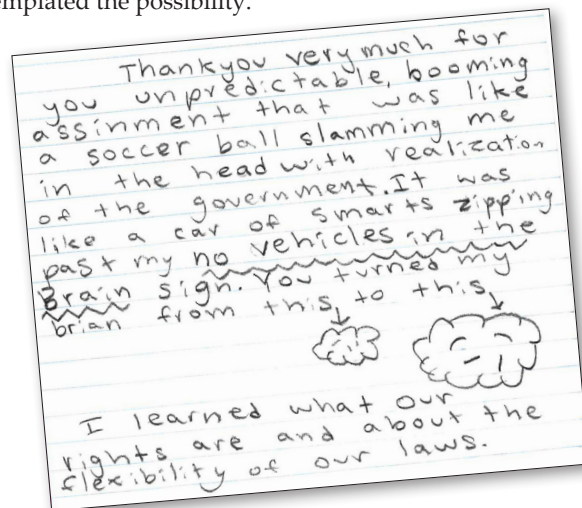 templated the possibility.
Thankyou very much for
you unpredictable, booming
assinment that was like
a soccer ball slamming me
in the head with realization
of the government. It was
like a car of smarts zipping
past my no vehicles in the
Brain sign. You turned my
brian from this, to this,
I learned what our
rights are and about the
flexibility of our laws.